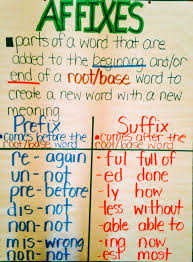 AFFIXES
parts of a word that are
added to the beginning and/or
end of a root/base word to
create a new word with a new
meaning
Prefix
comes before the
root/base word
re - again
un - not
pre - before
dis - not
non - not
mis - wrong
non - not
Suffix
comes after the
root/base word
- ful full of
- ed done
- ly how
- less without
- able able to
- ing now
- est most